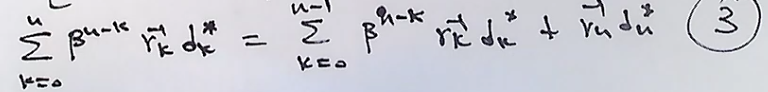 \sum_{k=0}^{n} β^{n-k} \vec{r}_k d_k^* = \sum_{k=0}^{n-1} β^{n-k} \vec{r}_k d_k^* + \vec{r}_n d_n^* (3)